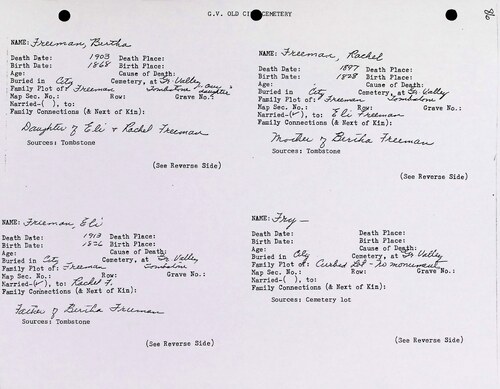 G.V. OLD CITY CEMETERY
98
NAME: Freeman, Bertha
Death Date: 1903 Death Place:
Birth Date: 1868 Birth Place:
Age: Cause of Death:
Buried in City Cemetery, at Gr. Valley
Family Plot of: Freeman Tombstone "daughter"
Map Sec. No.: Row: Grave No.:
Married-( ), to:
Family Connections (& Next of Kin):
Daughter of Eli + Rachel Freeman
Sources: Tombstone
(See Reverse Side)
NAME: Freeman, Rachel
Death Date: 1887 Death Place:
Birth Date: 1828 Birth Place:
Age: Cause of Death:
Buried in City Cemetery, at Gr. Valley
Family Plot of: Freeman Tombstone
Map Sec. No.: Row: Grave No.:
Married-(✓), to: Eli Freeman
Family Connections (& Next of Kin):
Mother of Bertha Freeman
Sources: Tombstone
(See Reverse Side)
NAME: Freeman, Eli
Death Date: 1913 Death Place:
Birth Date: 1826 Birth Place:
Age: Cause of Death:
Buried in City Cemetery, at Gr. Valley
Family Plot of: Freeman Tombstone
Map Sec. No.: Row: Grave No.:
Married-(✓), to: Rachel F.
Family Connections (& Next of Kin):
Father of Bertha Freeman
Sources: Tombstone
(See Reverse Side)
NAME: Fry —
Death Date: Death Place:
Birth Date: Birth Place:
Age: Cause of Death:
Buried in City Cemetery, at Gr. Valley
Family Plot of: Curbed lot - no monument
Map Sec. No.: Row: Grave No.:
Married-( ), to:
Family Connections (& Next of Kin):
Sources: Cemetery lot
(See Reverse Side)